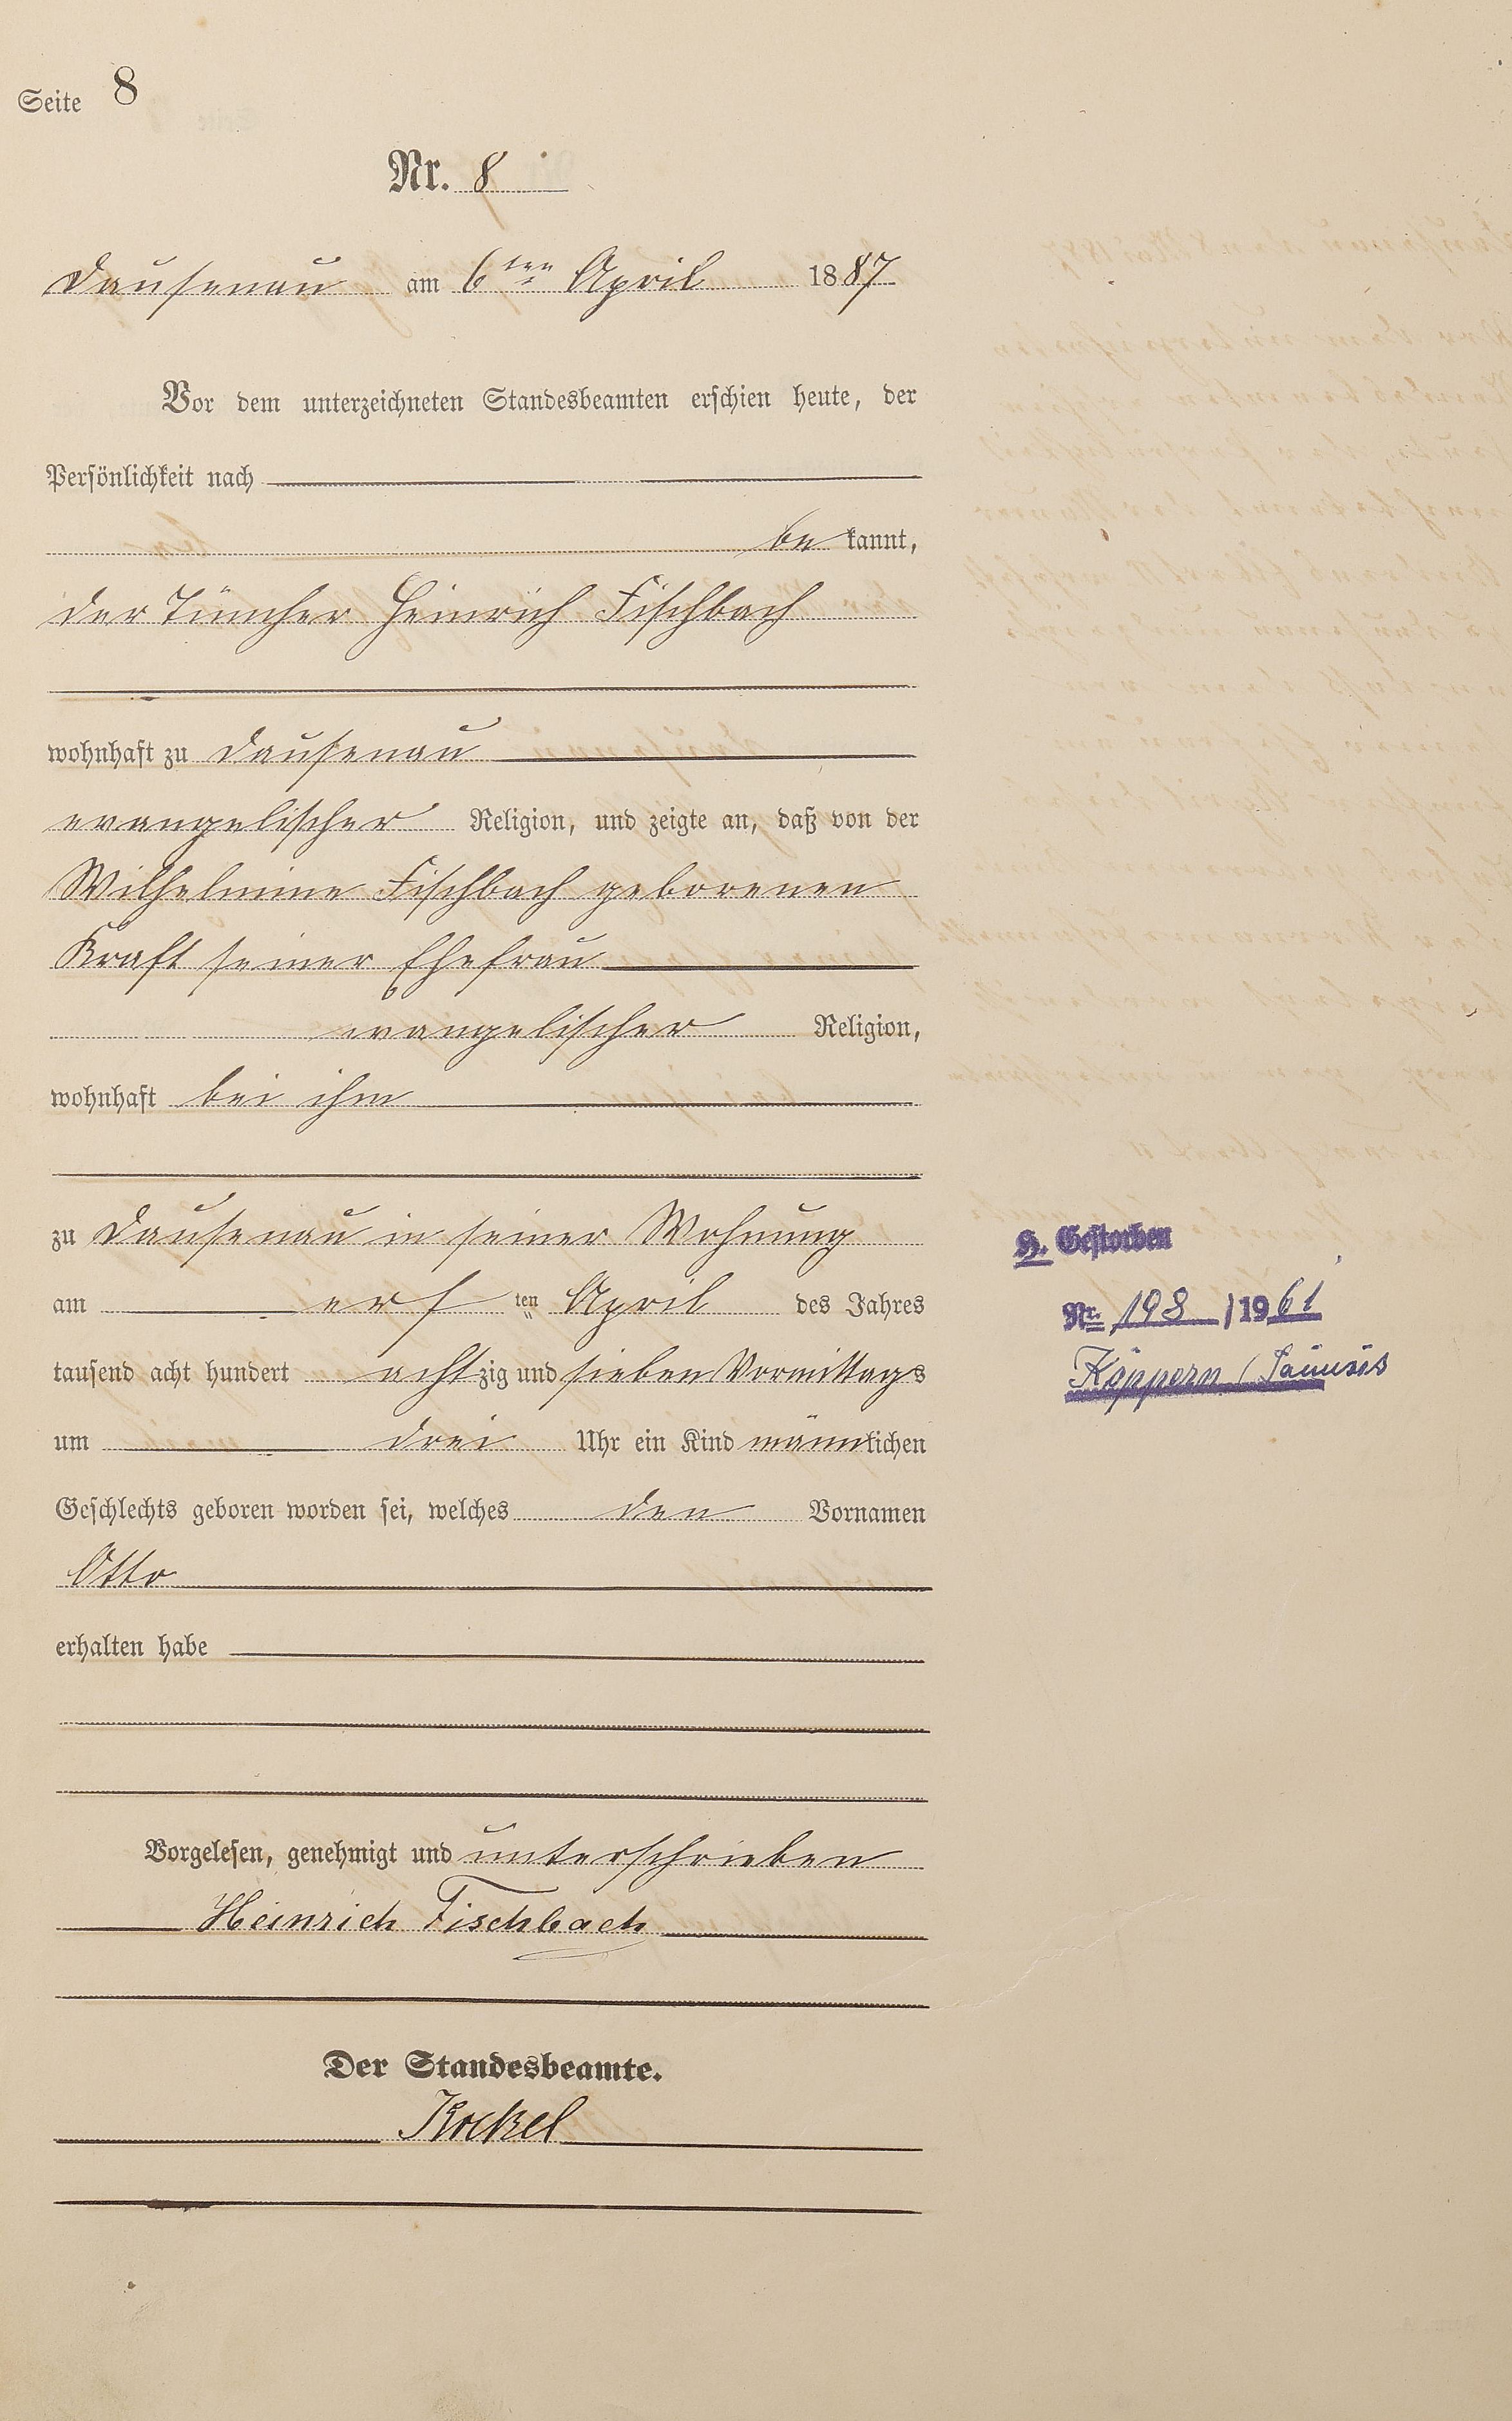 Seite 8
Nr. 8
Dausenau am 6ten April 1887
Vor dem unterzeichneten Standesbeamten erschien heute, der
Persönlichkeit nach
be kannt,
der Tüncher Heinrich Fischbach
wohnhaft zu Dausenau
evangelischer Religion, und zeigte an, daß von der
Wilhelmine Fischbach geborenen
Kraft seiner Ehefrau
evangelischer Religion,
wohnhaft bei ihm
zu Dausenau in seiner Wohnung
am ersten April des Jahres
tausend acht hundert achtzig und sieben Vormittags
um drei Uhr ein Kind männlichen
Geschlechts geboren worden sei, welches den Vornamen
Otto
erhalten habe
Vorgelesen, genehmigt und unterschrieben
Heinrich Fischbach
Der Standesbeamte.
Kockel
H. Gestorben
Nr. 198 / 1961
Köppern / Taunus